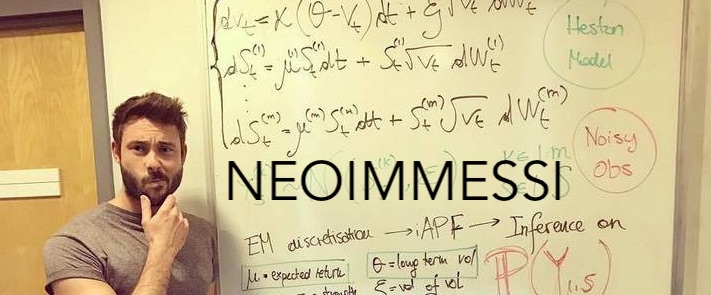 dv_t = κ(θ - v_t)dt + ξ√v_t dW_t
Heston
Model
dS_t^(1) = μ^(1) S_t^(1) dt + S_t^(1) √v_t dW_t^(1)
⋮
dS_t^(m) = μ^(m) S_t^(m) dt + S_t^(m) √v_t dW_t^(m)
Noisy
Obs
NEOIMMESSI
EM discretisation → iAPF → Inference on
μ = expected return
θ = long term vol
ξ = vol of vol